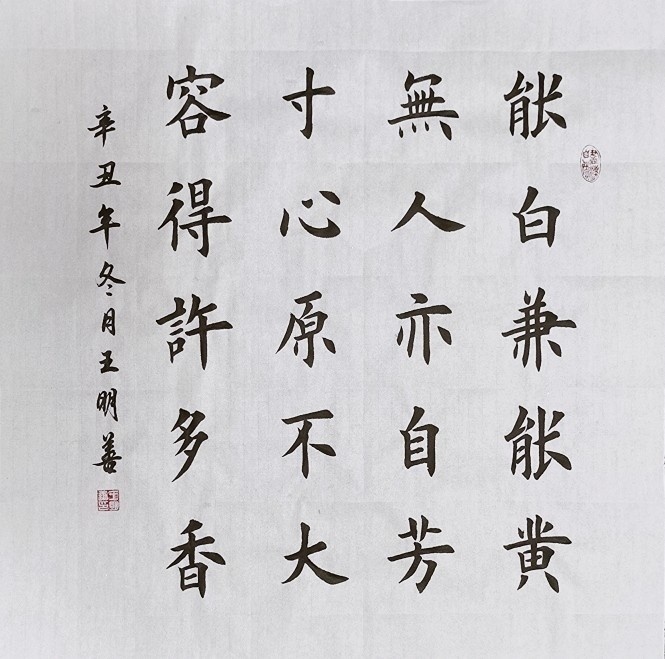 能白兼能黄
無人亦自芳
寸心原不大
容得許多香
辛丑年冬月王明善